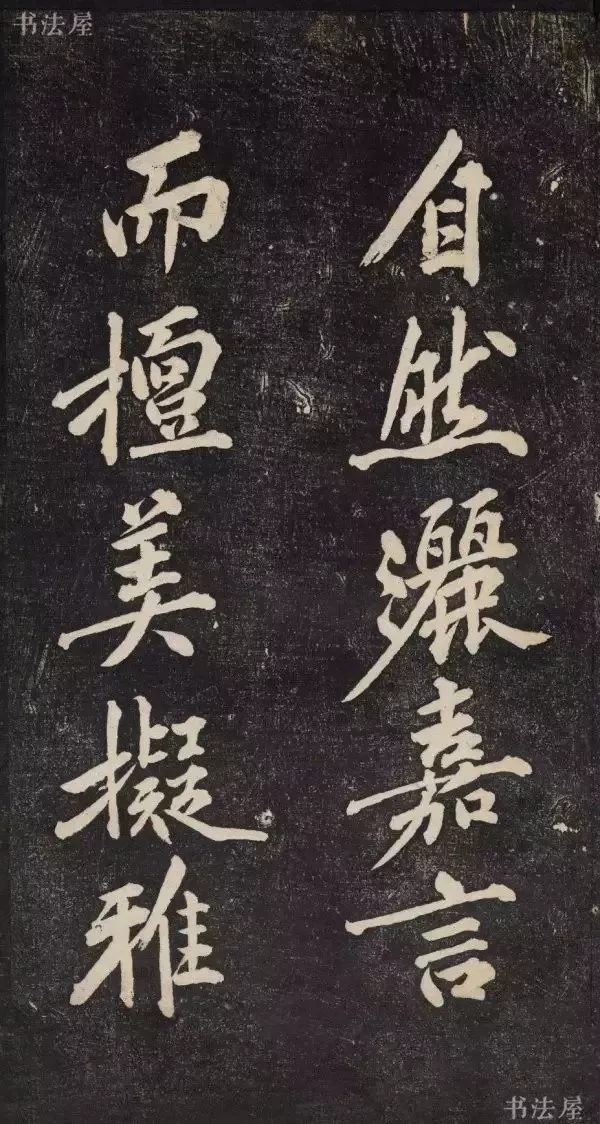 书法屋
自然灑嘉言
而擅美擬雅
书法屋